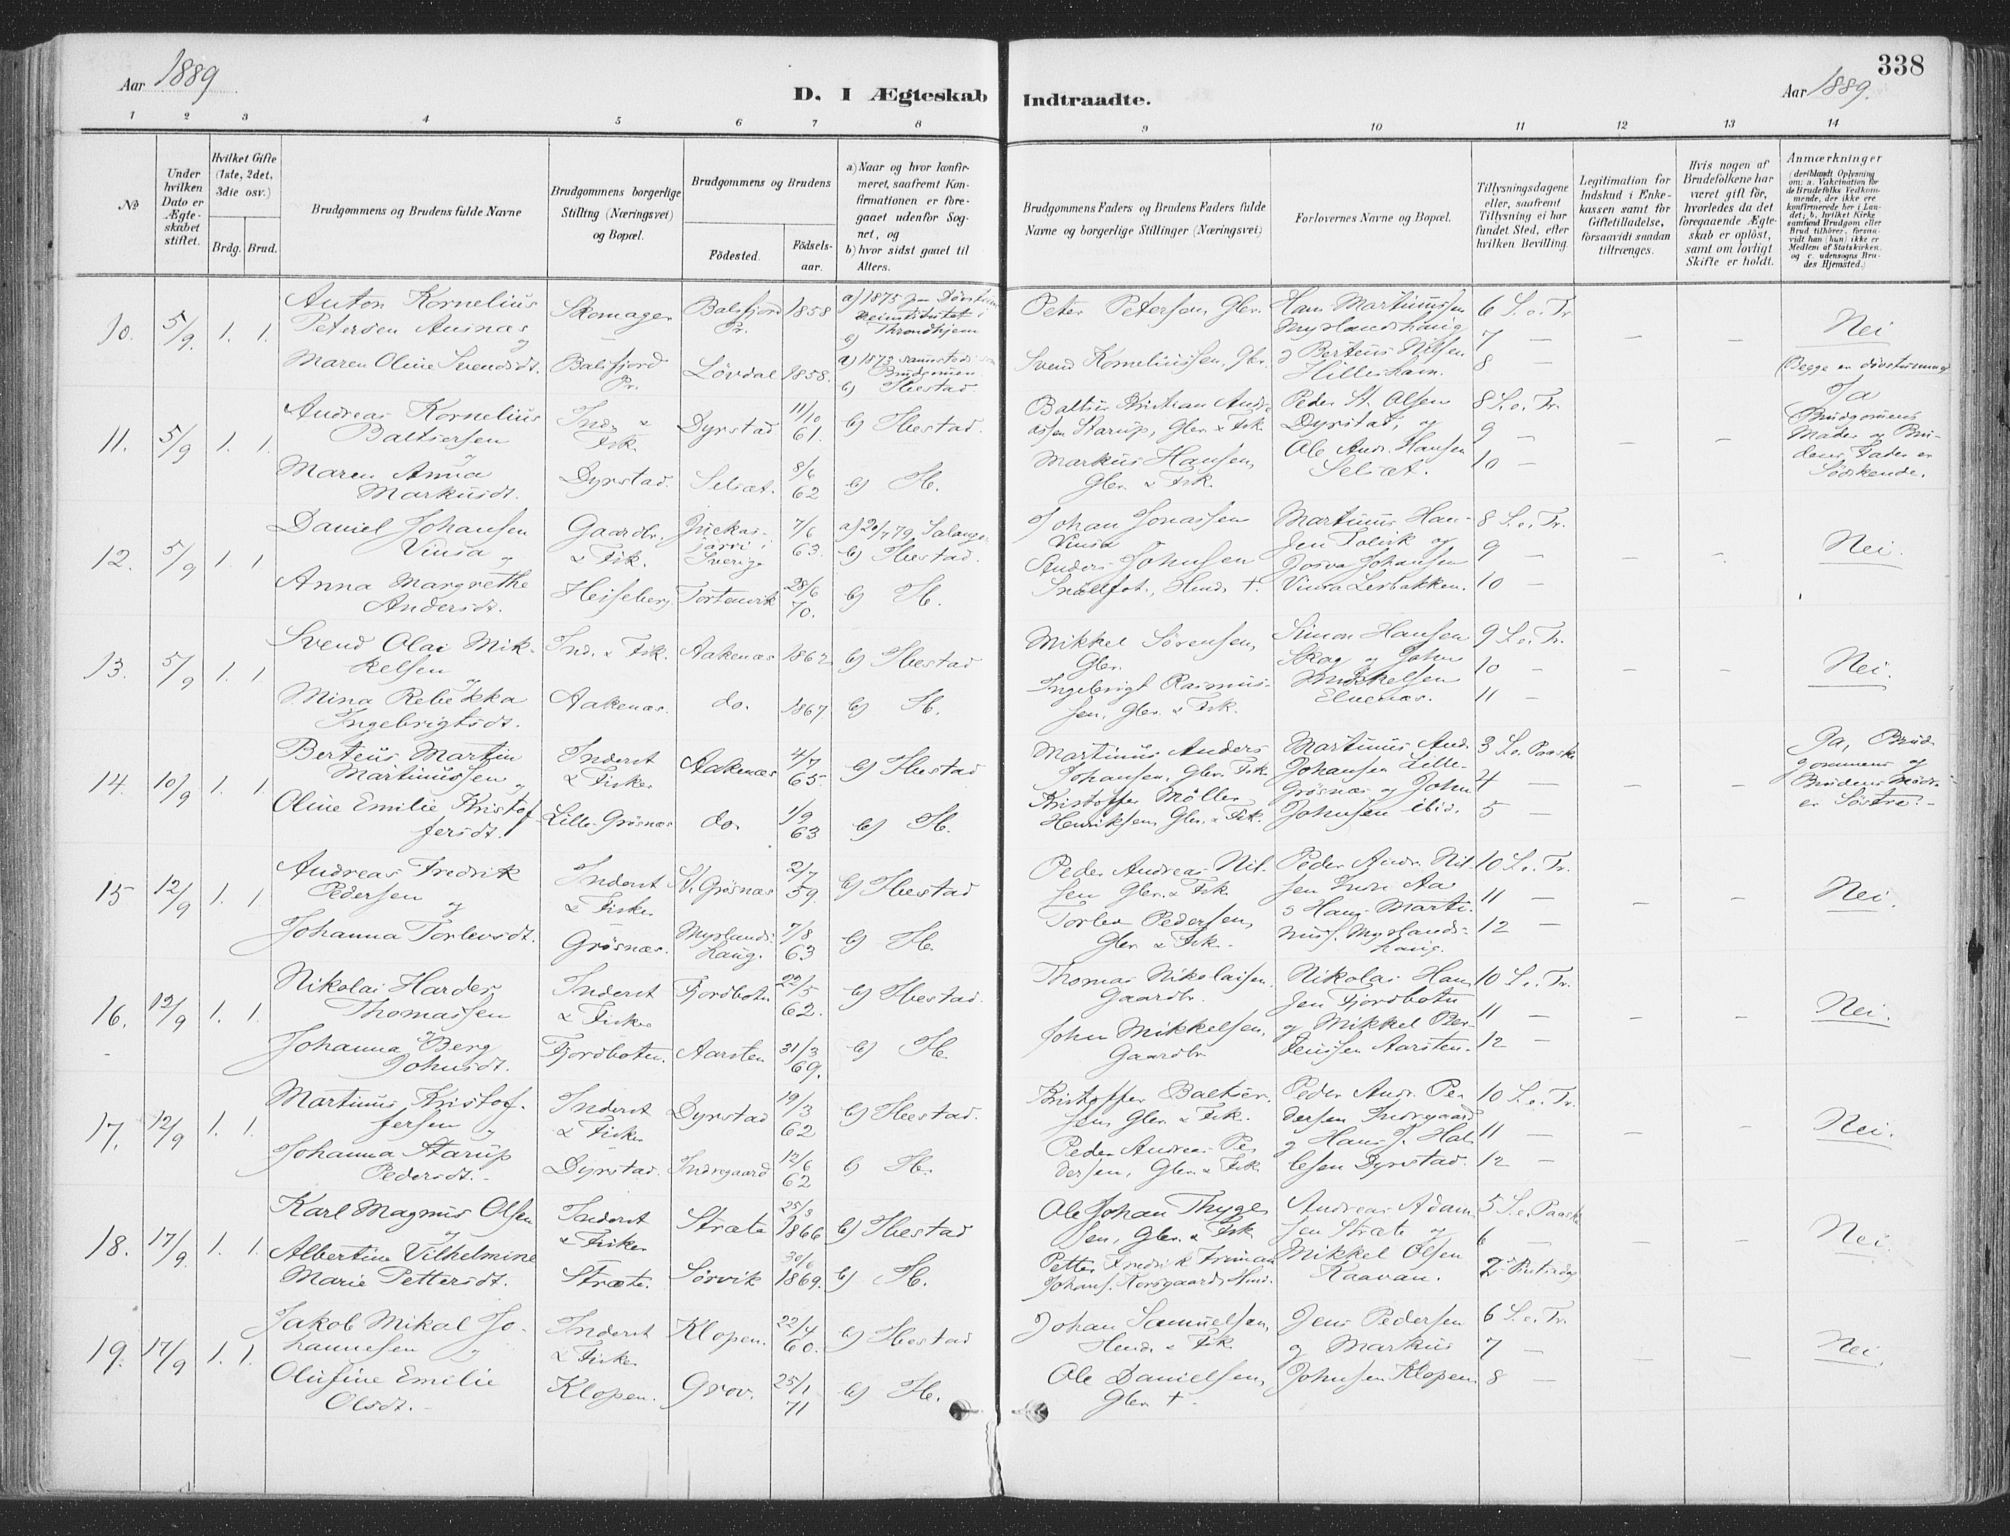 Aar 1889
D. I Ægteskab
Indtraadte.
Aar 1889.
338
1 2 3 4 5 6 7 8
9 10 11 12 13 14
No
Under
hvilken
Dato er
Ægte-
skabet
stiftet.
Hvilket Gifte
(1ste, 2det,
3die osv.)
Brdg. Brud.
Brudgommens og Brudens fulde Navne
Brudgommens borgerlige
Stilling (Næringsvei)
og Bopæl.
Brudgommens og Brudens
Födested.
Födsels-
aar.
a) Naar og hvor konfir-
meret, saafremt Kon-
firmationen er fore-
gaaet udenfor Sog-
net, og
b) hvor sidst gaaet til
Alters.
Brudgommens Faders og Brudens Faders fulde
Navne og borgerlige Stillinger (Næringsvei)
Forlovernes Navne og Bopæl.
Tillysningsdagene
eller, saafremt
Tillysning ei har
fundet Sted, efter
hvilken Bevilling.
Legitimation for
Indskud i Enke-
kassen samt for
Giftetilladelse,
forsaavidt saadan
tiltrænges.
Hvis nogen af
Brudefolkene har
været gift för,
hvorledes da det
foregaaende Ægte-
skab er oplöst,
samt om lovligt
Skifte er holdt.
Anmærkninger
(deriblandt Oplysning
om: a. Vakcination for
de Brudefolks Vedkom-
mende, der ikke ere
konfirmerede her i Lan-
det; b. hvilket Kirke-
samfund Brudgom eller
Brud tilhörer, forsaa-
vidt han (hun) ikke er
Medlem af Statskirken,
og c. udensogns Bru-
des Hjemsted.)
10. 5/9. 1. 1.
Anton Kornelius
Petersen Ausnæs
og
Maren Oline Svendsdt.
Skomager
Balsfjord
Pr.
Balsfjord
Pr.
Løvdal
1858
1858.
a) 1875 Døvstum
Throndhjem
a) 1873 sammesteds
Brudgommen
b) Ibestad.
Peter Petersen, Gbr.
Svend Korneliussen, Gbr.
Hans Martinussen
Myrlandshaug
Berteus Nilsen
Hilleshavn.
6 S. e. Tr.
7 —
8 —
Nei
(Begge er døvstumme)
11. 5/9 1. 1.
Andreas Kornelius
Baltsersen
og
Maren Anna
Markusdt.
Ind. &
Fisk.
Dyrstad.
Dyrstad
Selsæt.
11/10
61.
8/6
62
b) Ibestad.
b) Ib.
Baltser Kristian Andre-
assen Starup, Gbr. & Fisk
Markus Hansen,
Gbr. & Fisk.
Peder St. Olsen
Dyrstad, og
Ole Andr. Hansen
Selsæt.
8 S. e. Tr.
9 —
10 —
Ja
Brudgommens
Moder og Bru-
dens Fader er
Sødskende.
12. 5/9 1. 1
Daniel Johansen
Vinsa og
Anna Margrethe
Andersdt.
Gaardbr.
& Fisk.
Heiseberg
Juckas-
järvi i
Sverige
Tortenvik
7/6
63.
28/6
70.
a) 20/7 79, Salangen
b) Ibestad.
b) Ib.
Johan Jonassen
Vinsa
Anders Johnsen
Snellfot, Husm. †.
Martinus Han-
sen Tolvik og
Josva Johansen
Vinsa Lesbakken.
8 S. e. Tr.
9 —
10 —
Nei.
13. 5/9 1. 1
Svend Olai Mik-
kelsen
og
Mina Rebekka
Ingebrigtsdt.
Ind. & Fisk.
Aakenæs.
Aakenæs
do.
1862
1867
b) Ibestad
b) Ib.
Mikkel Sørensen,
Gbr.
Ingebrigt Rasmus-
sen, Gbr. & Fisk.
Simon Hansen
Skog og Johan
Mikkelsen
Elvenæs.
9 S. e. Tr.
10 —
11 —
Nei.
14. 10/9 1. 1.
Berteus Martin
Martinussen
og
Oline Emilie Kristof-
fersdt.
Inderst
& Fisker
Lille-Grøsnæs
Aakenæs
do.
4/7
65.
1/9
63
b) Ibestad
b) Ib.
Martinus Anders
Johansen, Gbr. Fisk
Kristoffer Møller
Henriksen, Gbr. & Fisk.
Martinus And.
Johansen Lille-
Grøsnæs og John
Johnsen ibid.
3 S. e. Paaske
4 —
5 —
Ja, Brud-
gommens og
Brudens Mødre
er Søstre.
15 12/9 1. 1.
Andreas Fredrik
Pedersen
og
Johanna Torlevsdt.
Inderst
& Fisker
Grøsnæs.
St. Grøsnæs
Myrlands-
haug.
2/7
59.
7/8
63
b) Ibestad
b) Ib.
Peder Andreas Nil-
sen Gbr. & Fisk.
Torlev Pedersen,
Gbr. & Fisk.
Peder Andr. Nil-
sen Indre Aa
& Hans Marti-
nuss. Myrlands-
haug.
10 S. e. Tr.
11 —
12 —
Nei.
16. 12/9 1. 1.
Nikolai Harder
Thomassen
og
Johanna Berg
Johnsdt.
Inderst
& Fisker
Fjordbotn.
Fjordbotn
Aarsten
22/5
62.
31/3
69.
b) Ibestad.
b) Ib.
Thomas Nikolaisen
Gaardbr.
John Mikkelsen,
Gaardbr
Nikolai Han-
sen Fjordbotn
og Mikkel Per-
 Aarsten.
10 S. e. Tr.
11 —
12 —
Nei.
17. 12/9 1. 1.
Martinus Kristof-
fersen
og
Johanna Starup
Pedersdt.
Inderst
& Fisker
Dyrstad.
Dyrstad
Indregaard
19/3
62
12/6
62
b) Ibestad.
b) Ib.
Kristoffer Baltser-
sen, Gbr. & Fisk.
Peder Andreas Pe-
dersen, Gbr. & Fisk.
Peder Andr. Pe-
dersen Indregaard
og Hans J. Hal-
Dyrstad.
10 S. e. Tr.
11 —
12 —
Nei.
18. 17/9 1. 1.
Karl Magnus Olsen
og
Albertine Vilhelmine
Marie Pettersdt.
Inderst
& Fisker
Stræte.
Stræte
Sørvik
25/3
1866
30/6
1869.
b) Ibestad
b) Ib.
Ole Johan Thyge-
sen, Gbr. & Fisk
Petter Fredrik Friman
Johans. Korsgaard, Husm.
Andreas Adam-
sen Stræte og
Mikkel Olsen
Kaavan.
5 S. e. Paaske
6 —
2 Pintsedag
Nei.
19. 17/9 1. 1.
Jakob Mikal Jo-
hannesen
og
Olufine Emilie
Olsdt.
Inderst
& Fisker
Klopen.
Klopen.
Grov.
22/4
60.
25/1
71
b) Ibestad
b) Ib.
Johan Samuelsen,
Husm. & Fisk
Ole Danielsen,
Gbr. †.
Jens Pedersen
og Markus
Johnsen Klopen
6 S. e. Tr.
7 —
8 —
Nei.